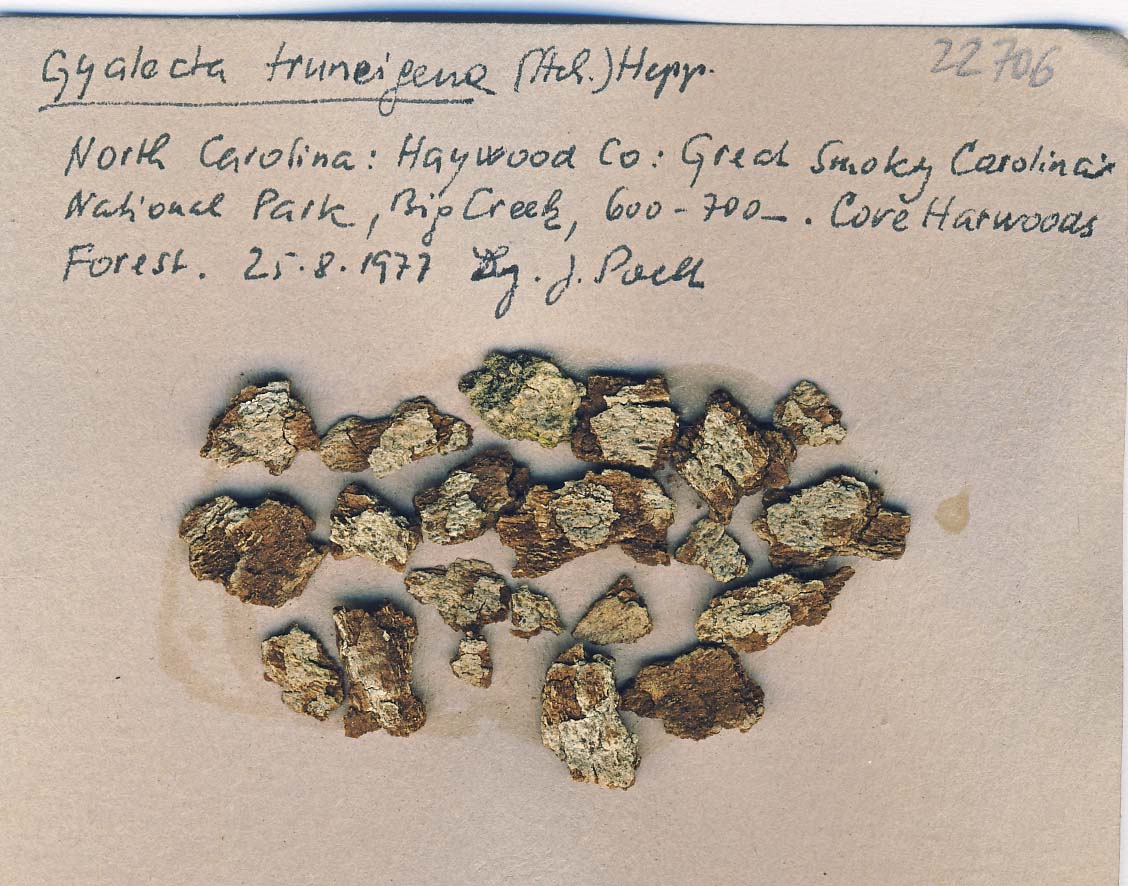 Gyalecta truncigena (Ach.) Hepp. 22706
North Carolina: Haywood Co: Great Smoky Carolina
National Park, Big Creek, 600-700 . Cove Harwoods
Forest. 25.8.1977 Lg. J. Poelt